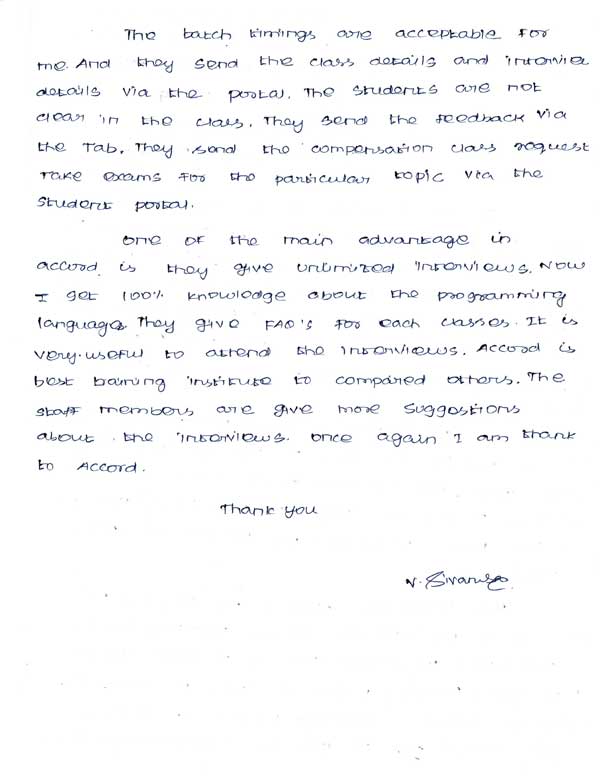 The batch timings are acceptable for
me. And they send the class details and interview
details via the portal. The students are not
clear in the class, They send the feedback via
the Tab. They send the compensation class request
Take exams for the particular topic via the
Student portal.
One of the main advantage in
accord is they give unlimited interviews. Now
I get 100% knowledge about the programming
language. They give FAQ's for each classes. It is
very useful to attend the interviews. Accord is
best training institute to compared others. The
staff members are give more suggestions
about the interviews. Once again I am thank
to Accord.
Thank you